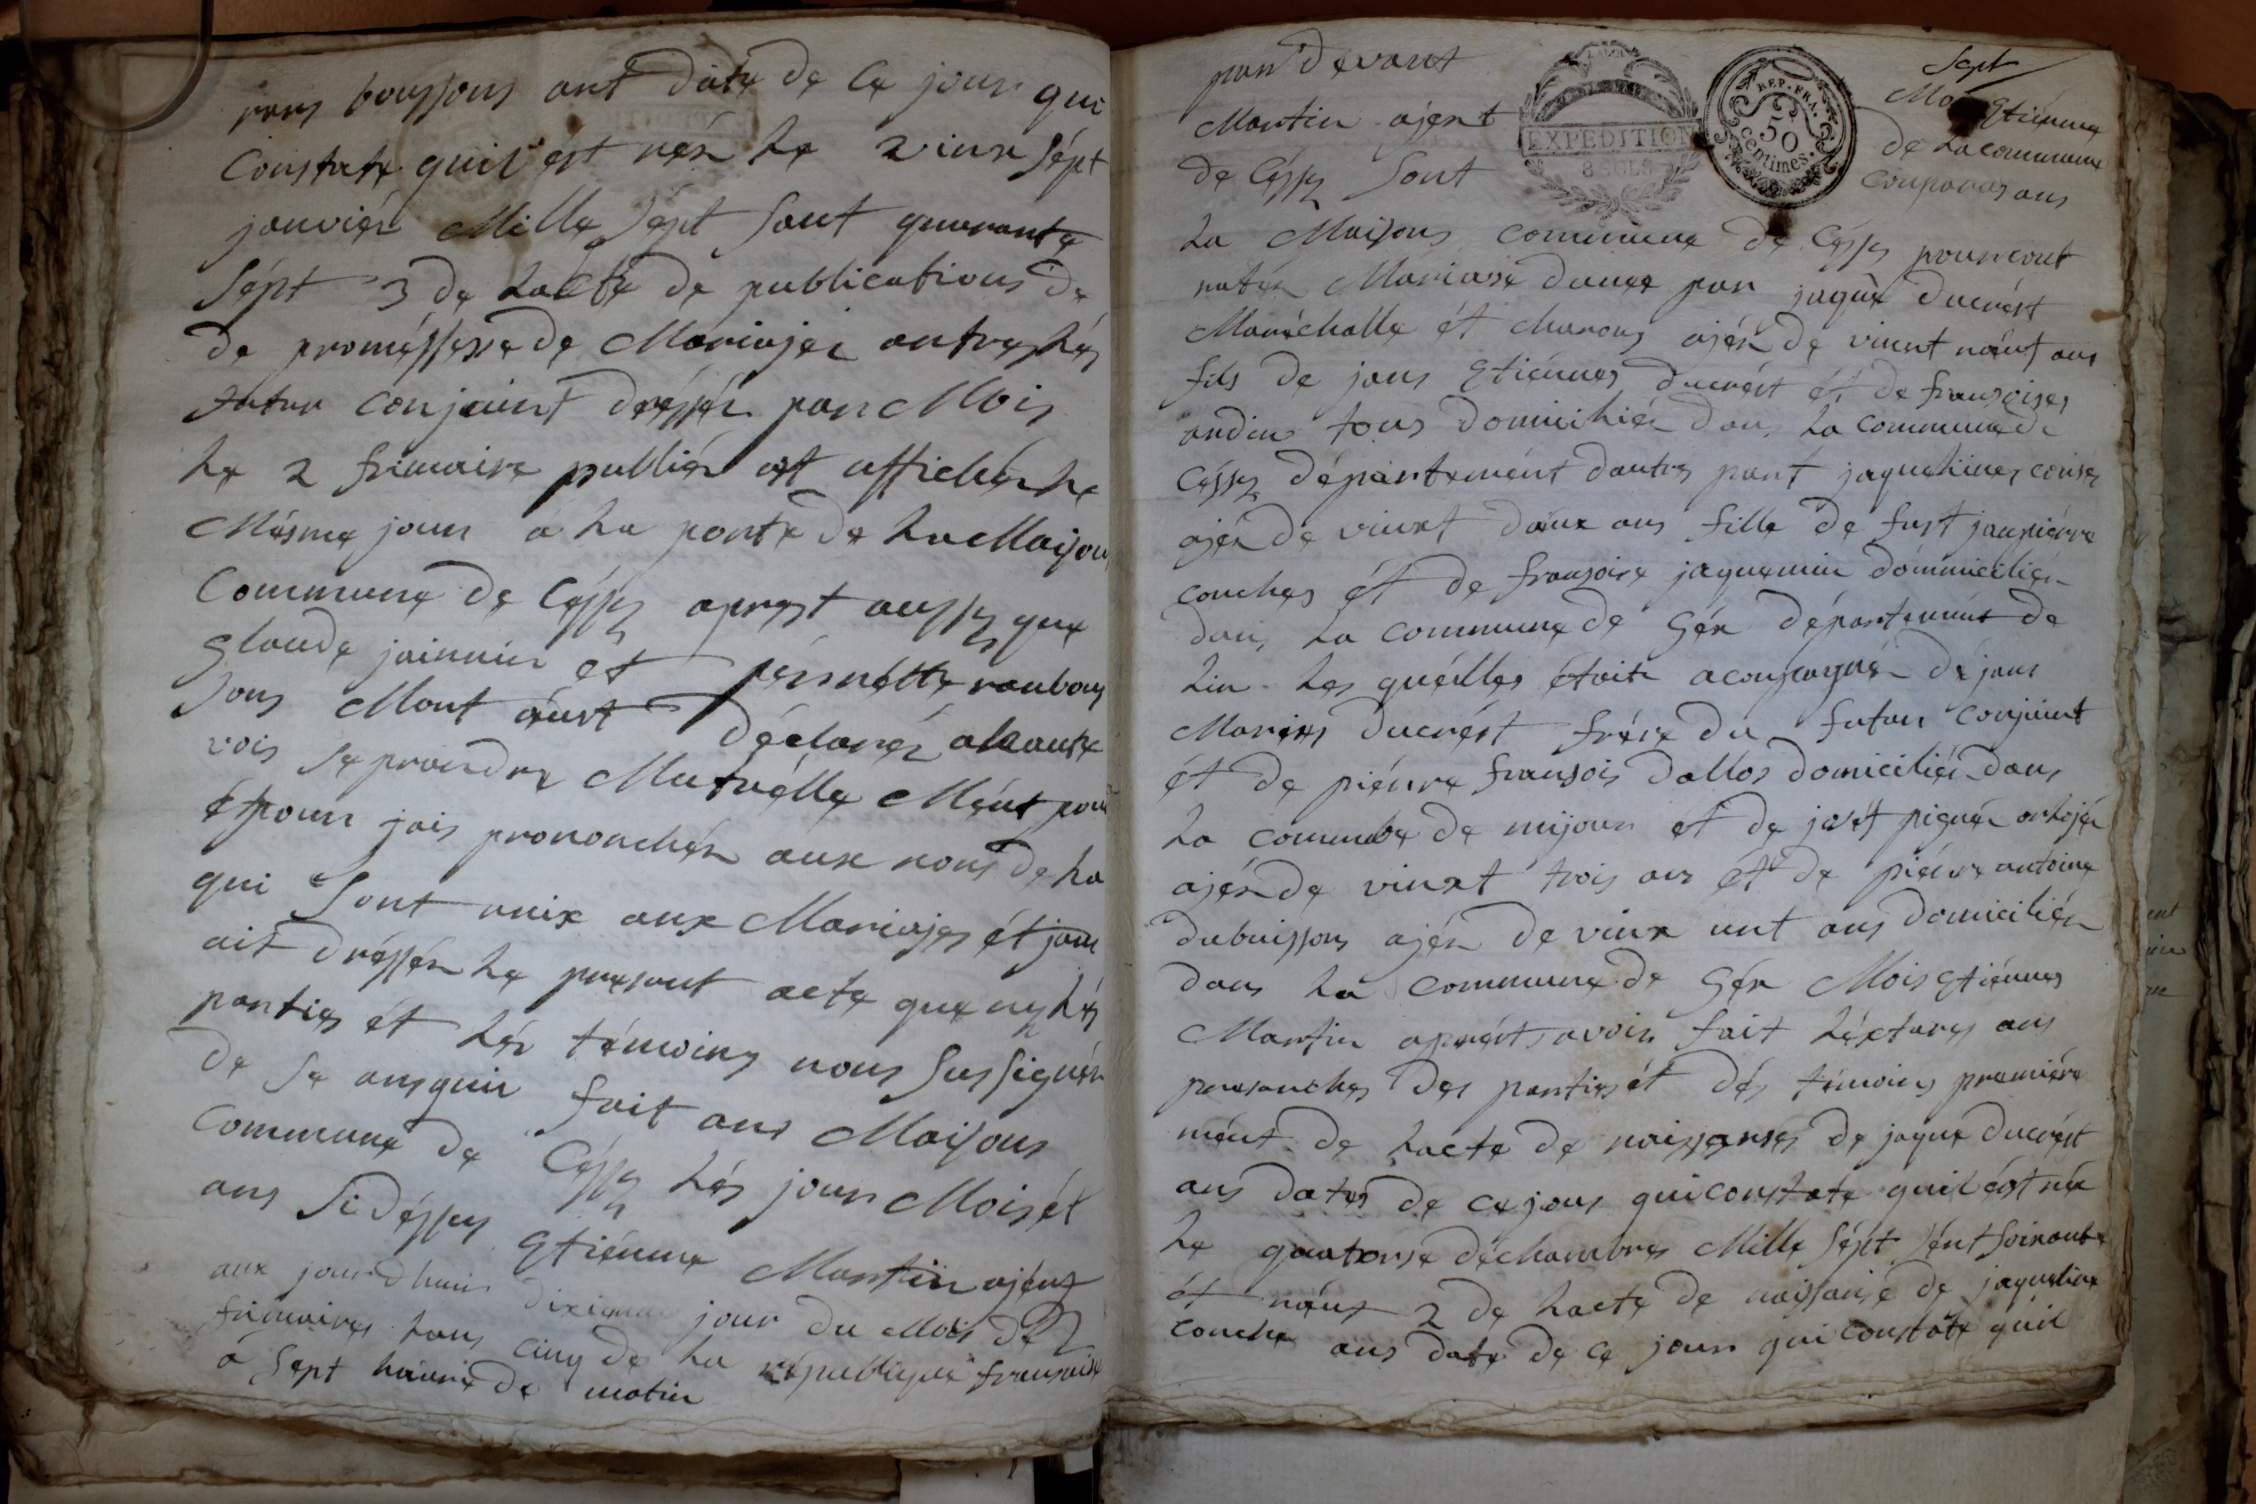 boussons ant date de ce jour qui
Constate quil est nér Le 2 vinx sépt
janviér Mille sépt sant quarante
sépt 3 de Lacte de publications de
de proméssesse de Mariajer antres Lés
futur conjoint dréssér par Mois
Le 2 frimaire publiér et affichér Le
Mésme jour a La porte de La Maison
Commune de Céssy aprest aussy que
glaude jainnier et pérnétte roubous
sons Mont aust déclarér ahaute
vois se prandre Mutuélle Mént pour
épour jais prononchér aux nons de La
qui sont unix aux Mariajes ét jans
ait dréssér Le present acte que Lés
parties ét Lér témoins nous sussignér
de se ansquir fait ans Maisons
Commune de Céssy Lés jour Mois ét
ans si déssus Etiénne Martin ajént
aux jourdhuis dixieme jour du Mois de
frimaires Lans cinq de La république fransaise
a sept hœure de matin
sept
par devant Etienne
Martin ajent de La commune
EXPEDITION
8 SOLS
REP. FRA.
50
centimes.
de Céssy sont Conparus ans
La Maisons commune de Céssy pour cont
rater Mariaxe dune par jaque ducrést
Maréchalle ét charons ajér de vinxt nœuf ans
fils de jans Etiénnes ducrést ét de fransoises
andins tous domiciliér dans La commune de
Céssy département dautres part jaquelines
ajér de vinxt daux ans fille de fust janpiérre
couches ét de fransoise jaquemin dommicilier
dans La commune de Gér département de
Lin Les quéilles étoite aconpagnér de jans
Maries ducrést frére du futur conjoint
ét de piérre fransois dallos domiciliér dans
La commune de mijour et de josét piguér orlojér
ajér de vinxt trois ans ét de piérre antoine
dubuissons ajér de vinx unt ans domiciliér
dans La commune de Gér Mois Etiénnes
Martin aprést avoir fait Léctures ans
presanches des parties ét dés témoins premiére
mént de Lacte de naissanses de jaque ducrést
ans dates de ce jour qui constate quil ést née
Le quatorse déchambres Mille sépt sént soixante
ét nœuf 2 de Lacte de naissanse de jaqueline
couche ans date de ce jour qui constate quil